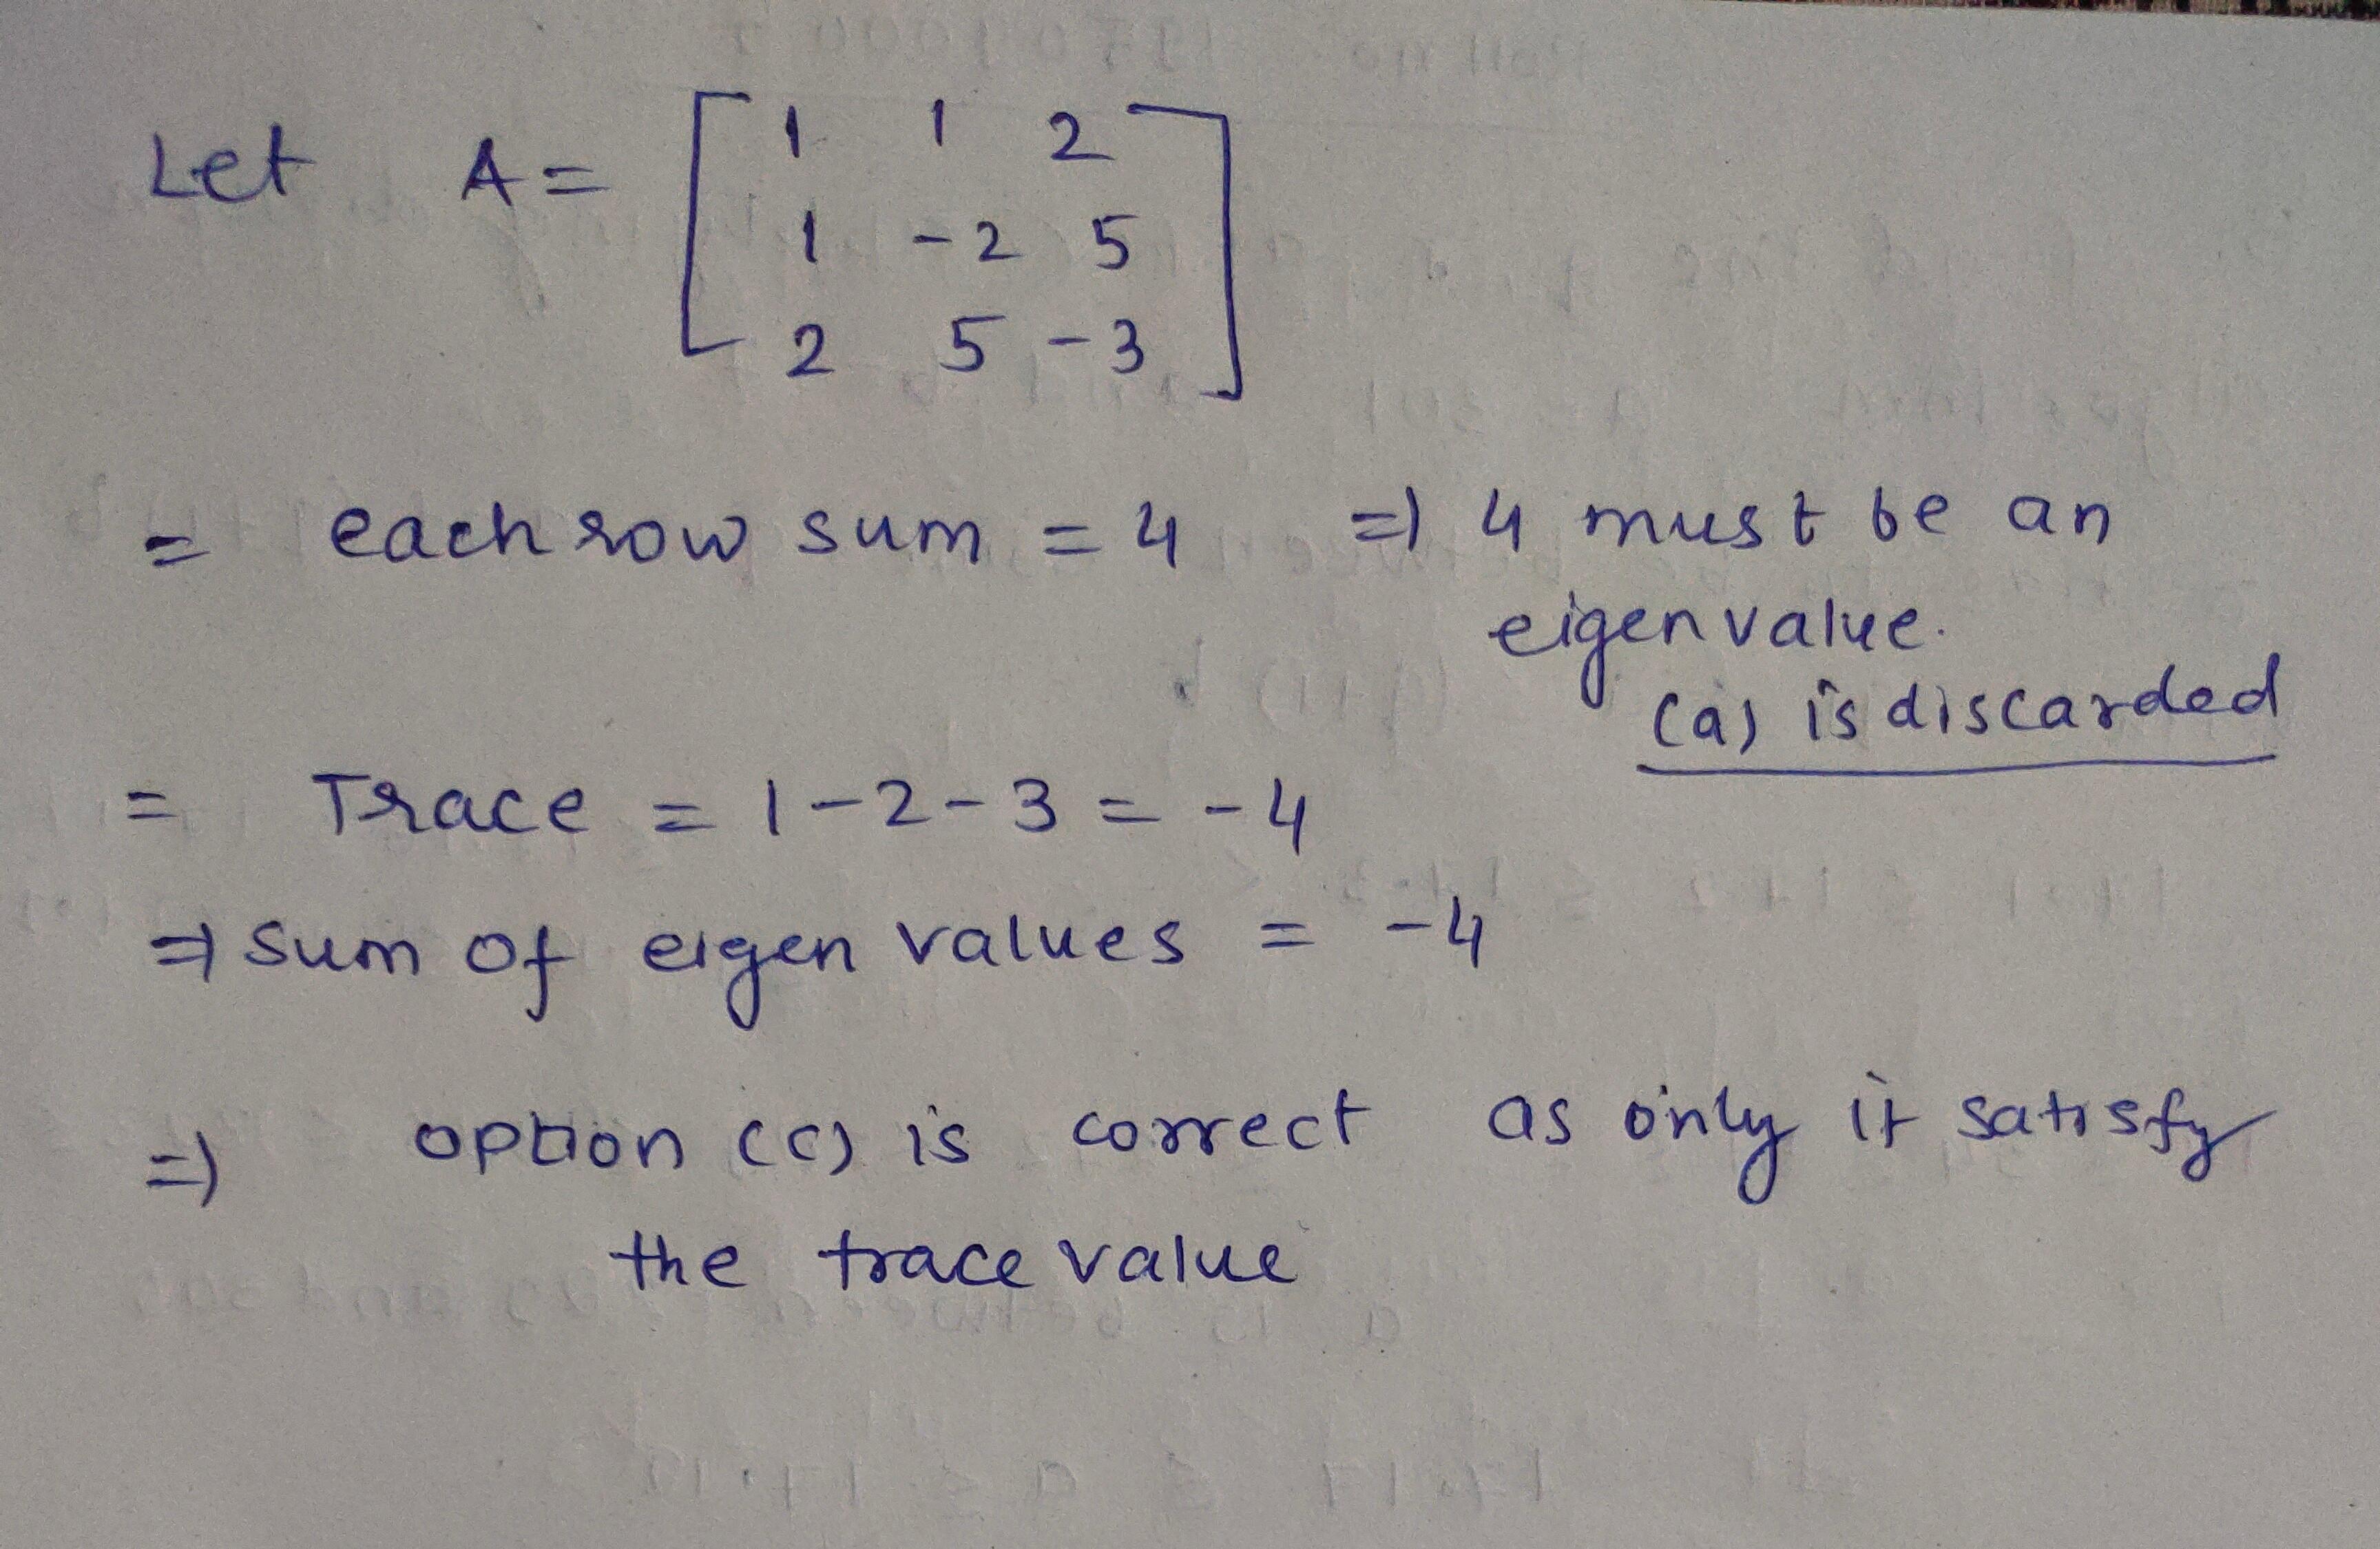 Let A = [ 1 1 2
1 -2 5
2 5 -3 ]
= each row sum = 4 => 4 must be an
eigen value.
(a) is discarded
= Trace = 1-2-3 = -4
=> sum of eigen values = -4
=> option (c) is correct as only it satisfy
the trace value